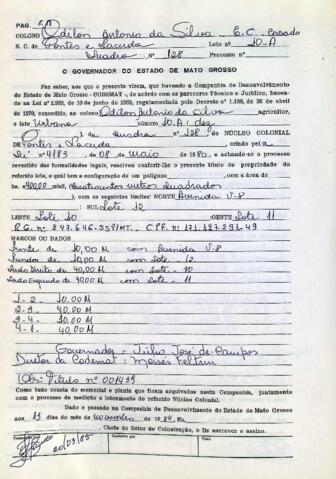 PAG.
COLONO Odilon Antonio da Silva - E.C. Casado
N. C. de Pontes e Lacerda Lote nº 10-A
Quadra nº 128 Processo nº
O GOVERNADOR DO ESTADO DE MATO GROSSO
Faz saber, aos que a presente virem, que havendo a Companhia de Desenvolvimento
do Estado de Mato Grosso - CODEMAT -, de acordo com os pareceres Técnico e Jurídico, basea-
da na Lei nº 2.933, de 10 de junho de 1969, regulamentada pelo Decreto nº 1.138, de 30 de abril
de 1970, concedido ao colono Odilon Antonio da Silva agricultor,
o lote Urbano número 10.A ( dez
A ) da quadra nº 128 do NÚCLEO COLONIAL
de Pontes e Lacerda criado pela
Lei nº 4183, de 08 de maio de 1980, e achando-se o processo
revestido das formalidades legais, resolveu conferir-lhe o presente título de propriedade do
referido lote, o qual tem a configuração de um polígono com a área de
400,00 mts², (quatrocentos metros quadrados
), com os seguintes limites: NORTE Avenida V-8
SUL Lote 12
LESTE Lote 10 OESTE Lote 11
R.G. nº 247.646.SSP/MT. C.P.F. nº 171.127.291-49
MARCOS OU DADOS
Frente de 10,00 M com Avenida V-8
Fundos de 10,00 M com Lote - 12
Lado Direito de 40,00 M com Lote - 10
Lado Esquerdo de 40,00 M com Lote - 11
1 - 2 - 10.00 M
2 - 3 - 40.00 M
3 - 4 - 10.00 M
4 - 1 - 40,00 M
Governador - Júlio José de Campos
Diretor da Codemat - Moisés Feltrin
Obs: Título nº 001439
Como tudo consta do memorial e planta que ficam arquivados nesta Companhia, juntamente
com o processo de medição e loteamento do referido Núcleo Colonial.
Dado e passado na Companhia de Desenvolvimento do Estado de Mato Grosso
aos 13 dias do mês de novembro de 1984, Eu
, Chefe do Setor de Colonização, o fiz escrever e assino.
20/03/85